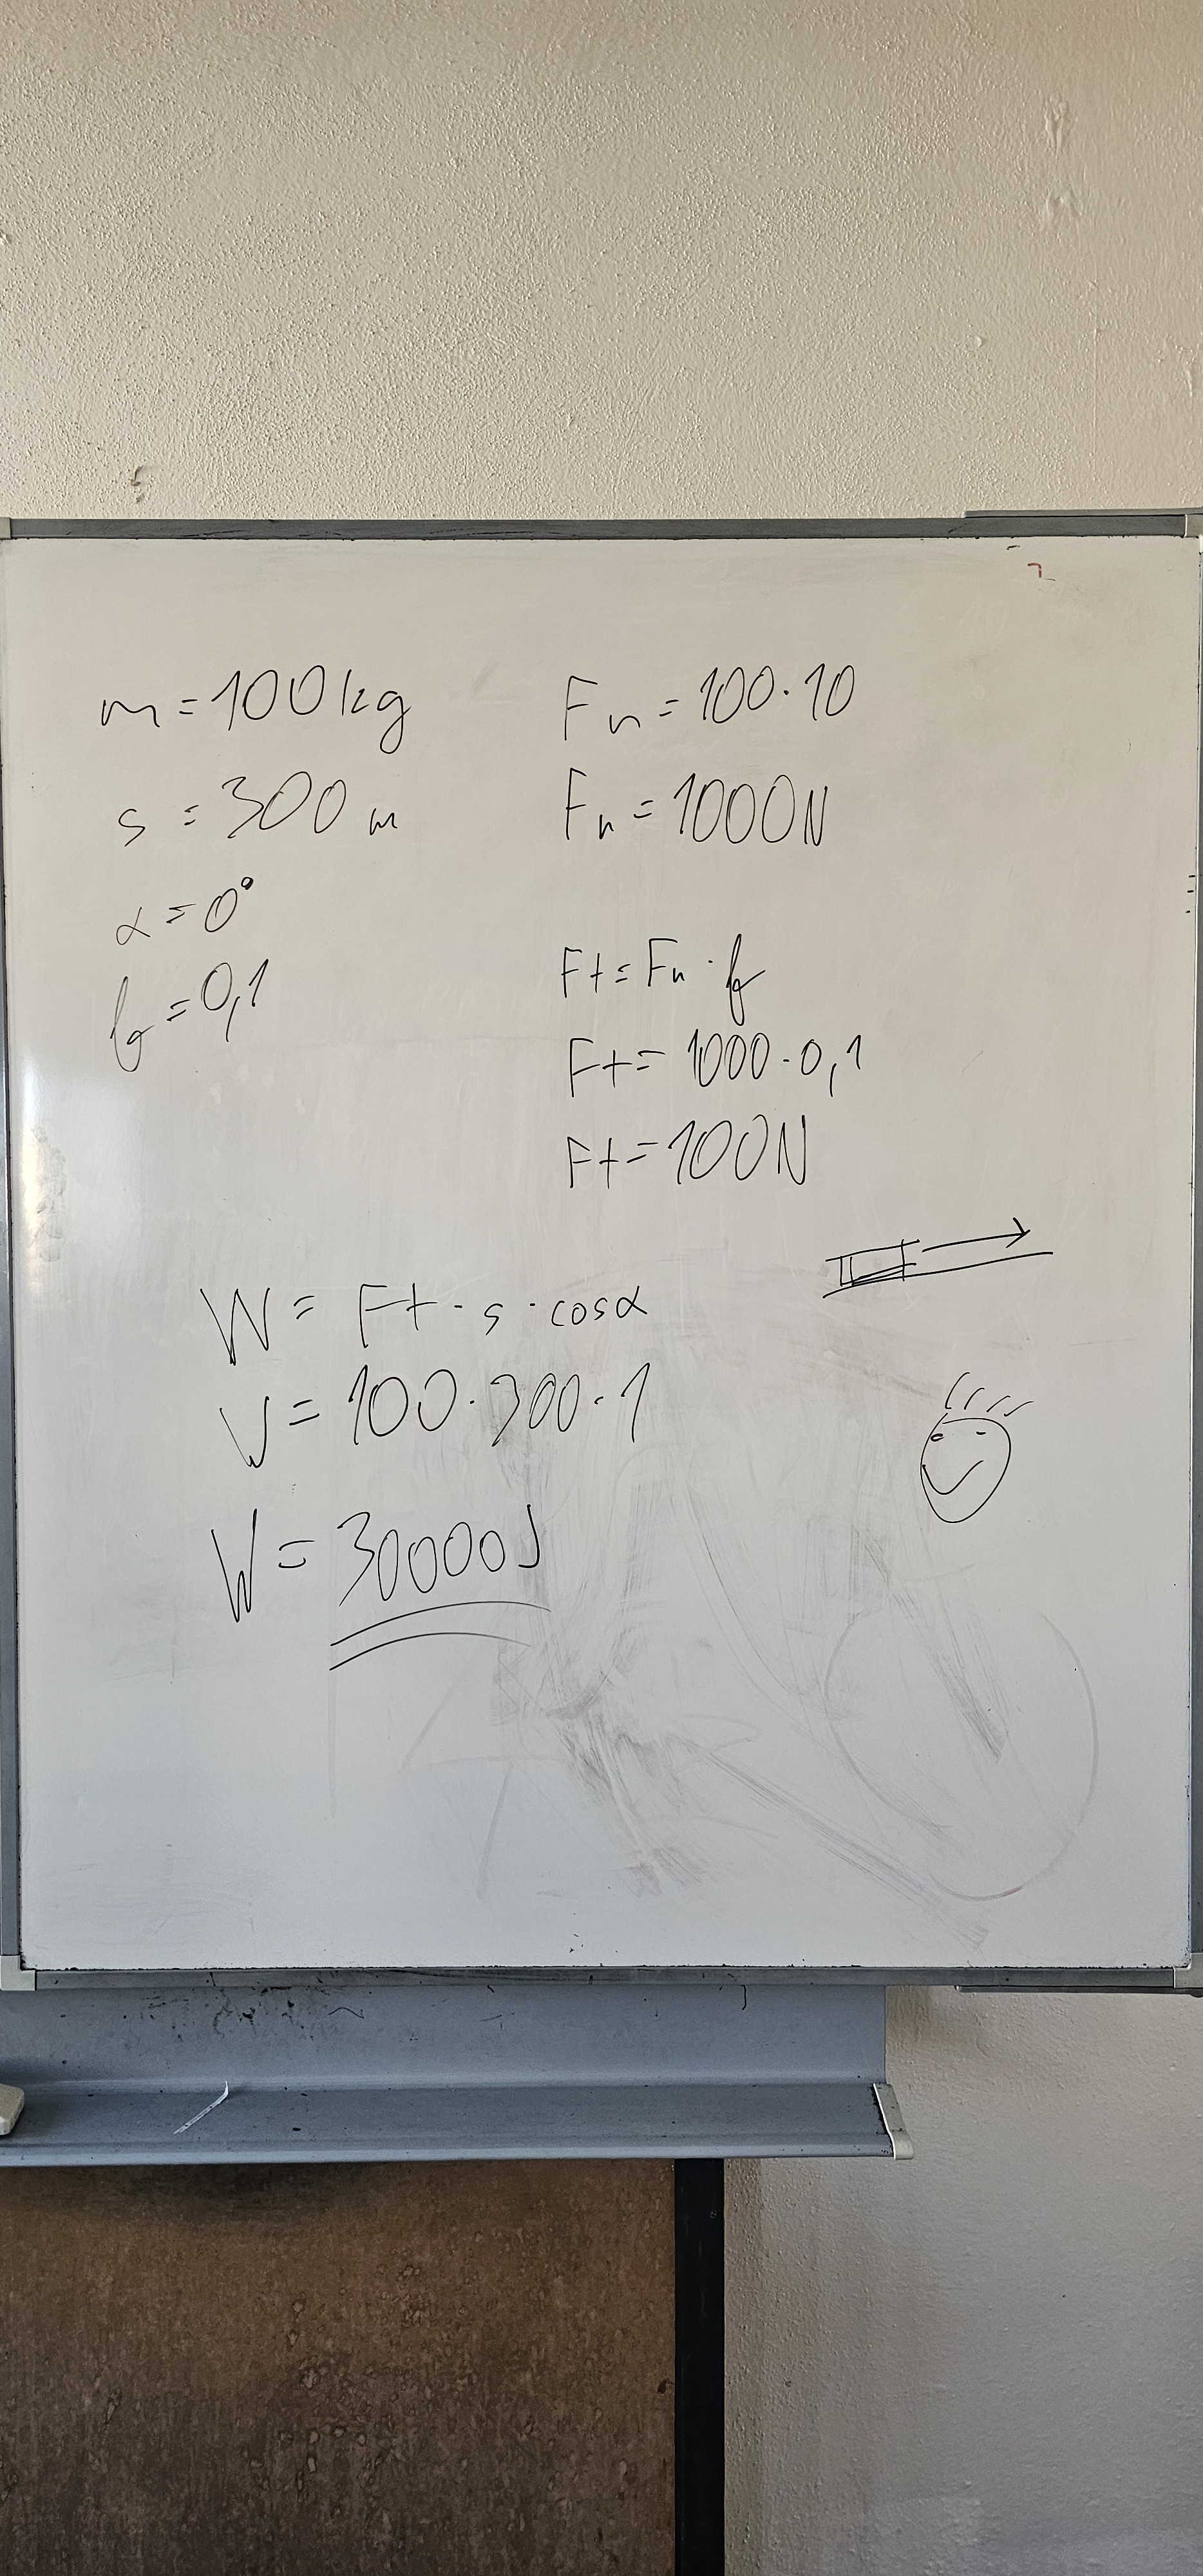 m = 100 kg
s = 300 m
α = 0°
f = 0,1
Fn = 100 · 10
Fn = 1000N
Ft = Fn · f
Ft = 1000 · 0,1
Ft = 100N
W = Ft · s · cosα
W = 100 · 300 · 1
W = 30000J